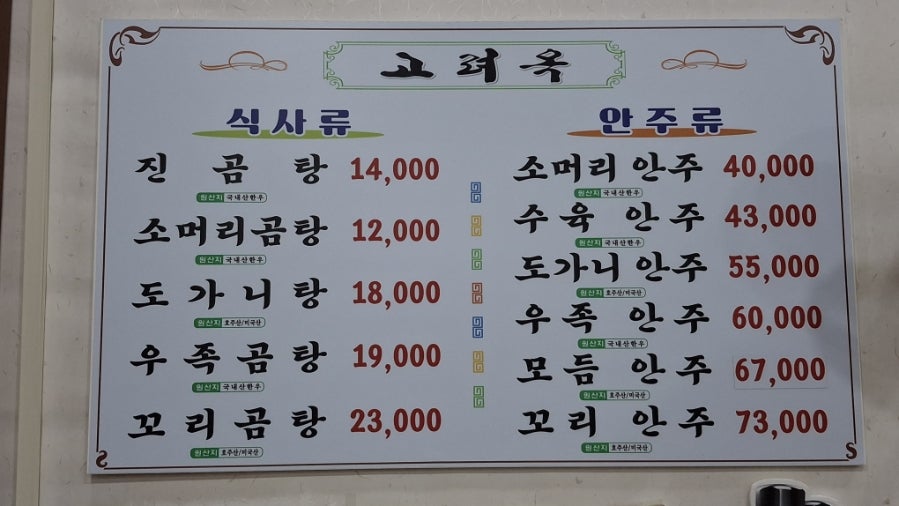 고려옥
식사류
진곰탕 14,000
원산지 국내산한우
소머리곰탕 12,000
원산지 국내산한우
도가니탕 18,000
원산지 호주산/미국산
우족곰탕 19,000
원산지 국내산한우
꼬리곰탕 23,000
원산지 호주산/미국산
안주류
소머리 안주 40,000
원산지 국내산한우
수육 안주 43,000
원산지 국내산한우
도가니 안주 55,000
원산지 호주산/미국산
우족 안주 60,000
원산지 국내산한우
모듬 안주 67,000
원산지 호주산/미국산
꼬리 안주 73,000
원산지 호주산/미국산